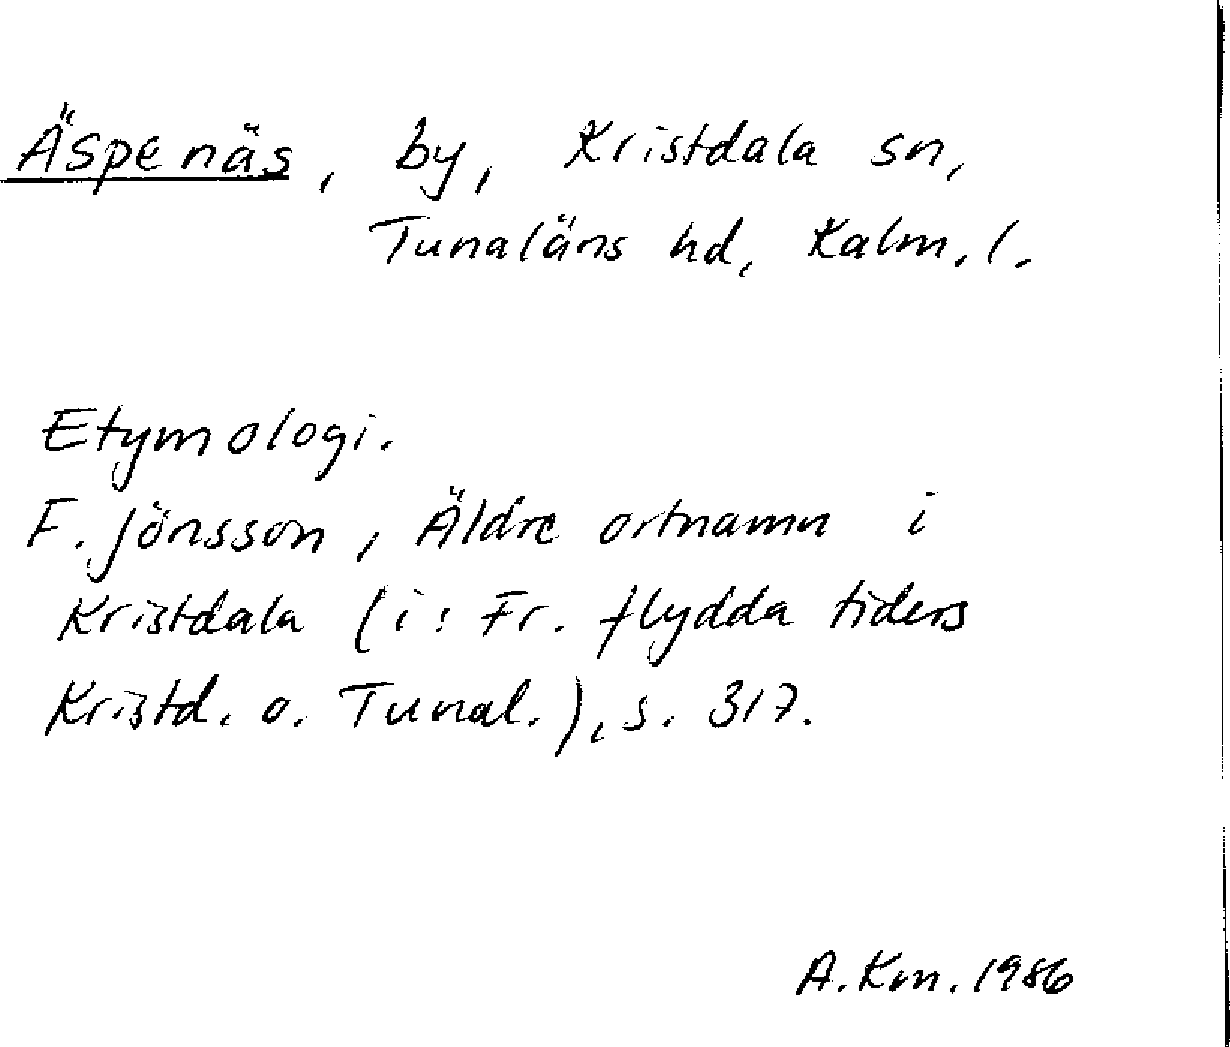 Äspenäs, by, Kristdala sn,
Tunaläns hd, Kalm. l.
Etymologi.
F. Jönsson, Äldre ortnamn i
Kristdala (i: Fr. flydda tiders
Kristd. o. Tunal.), s. 317.
A. Km. 1986